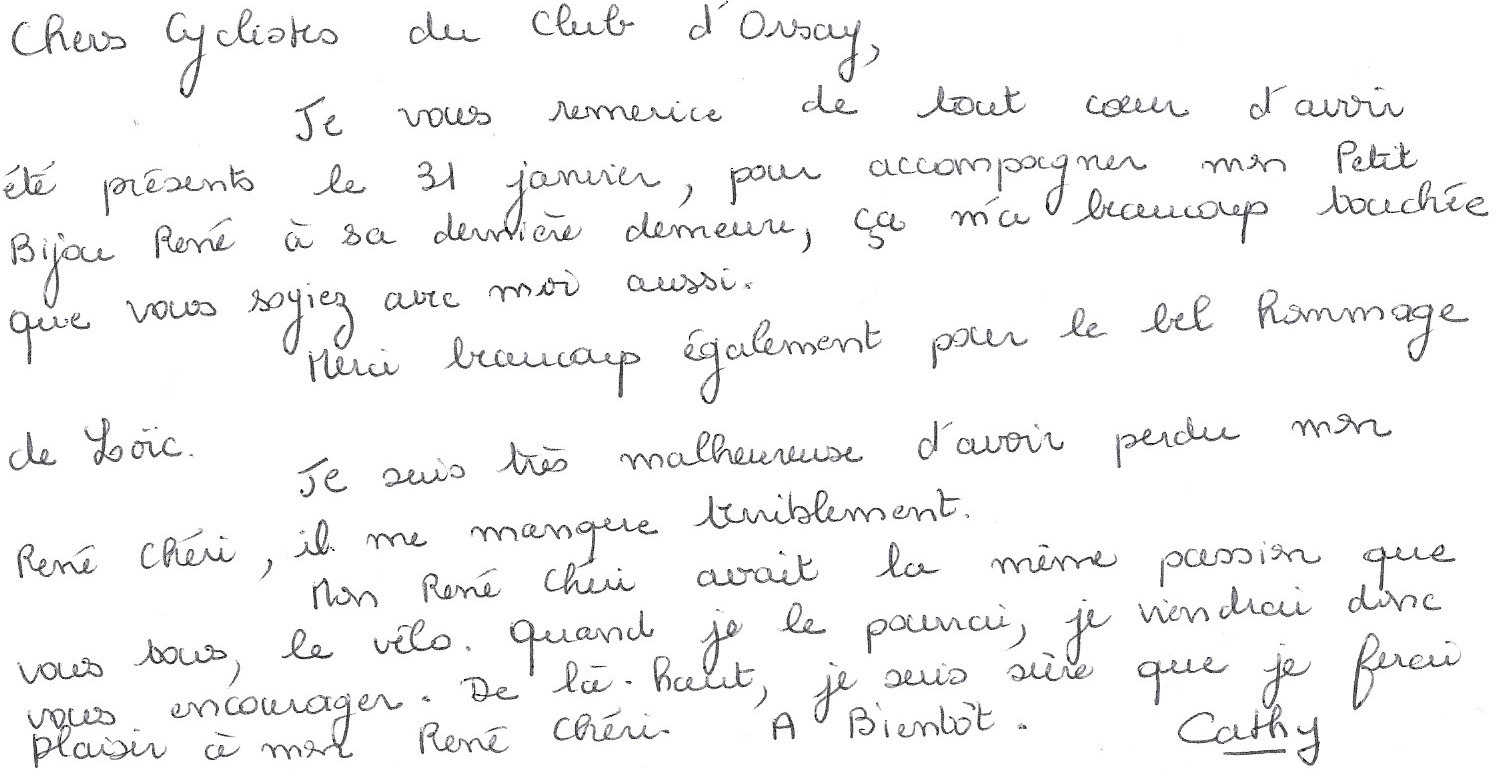 Chers Cyclistes du Club d'Orsay,
Je vous remerice de tout cœur d'avoir
été présents le 31 janvier, pour accompagner mon Petit
Bijou René à sa dernière demeure, ça m'a beaucoup touchée
que vous soyiez avec moi aussi.
Merci beaucoup également pour le bel hommage
de Loïc.
Je suis très malheureuse d'avoir perdu mon
René Chéri, il me manque terriblement.
Mon René Chéri avait la même passion que
vous tous, le vélo. Quand je le pourrai, je viendrai donc
vous encourager. De là-haut, je suis sûre que je ferai
plaisir à mon René Chéri. A Bientôt. Cathy